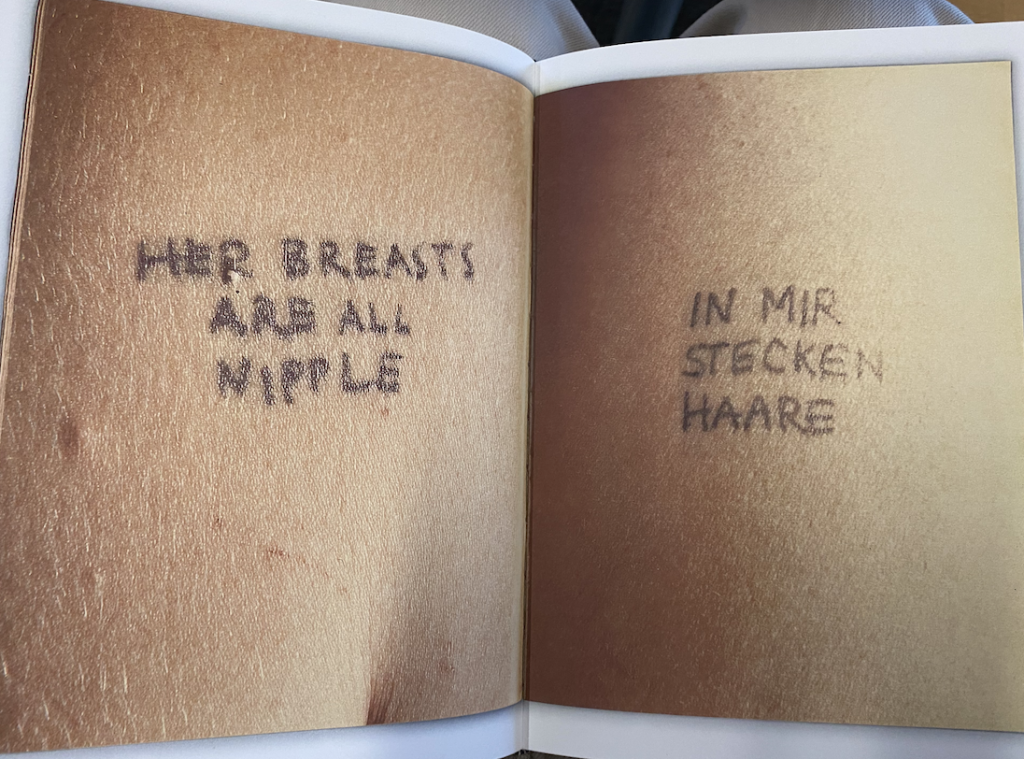 HER BREASTS
ARE ALL
NIPPLE
IN MIR
STECKEN
HAARE